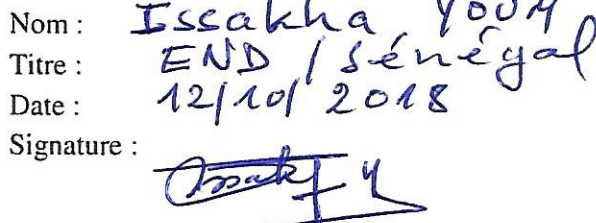 Nom : Issakha YOUM
Titre : END / Sénégal
Date : 12/10/2018
Signature :